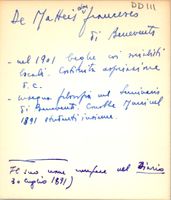 DD III
De Matteis don Francesco
di Benevento
- nel 1901 beghe coi
locali. Costituita associazione
D.C.
- insegna filosofia nel Seminario
di Benevento. Conobbe Murri nel
1891 studenti insieme.
Il suo nome compare nel Diario
30 luglio 1891)